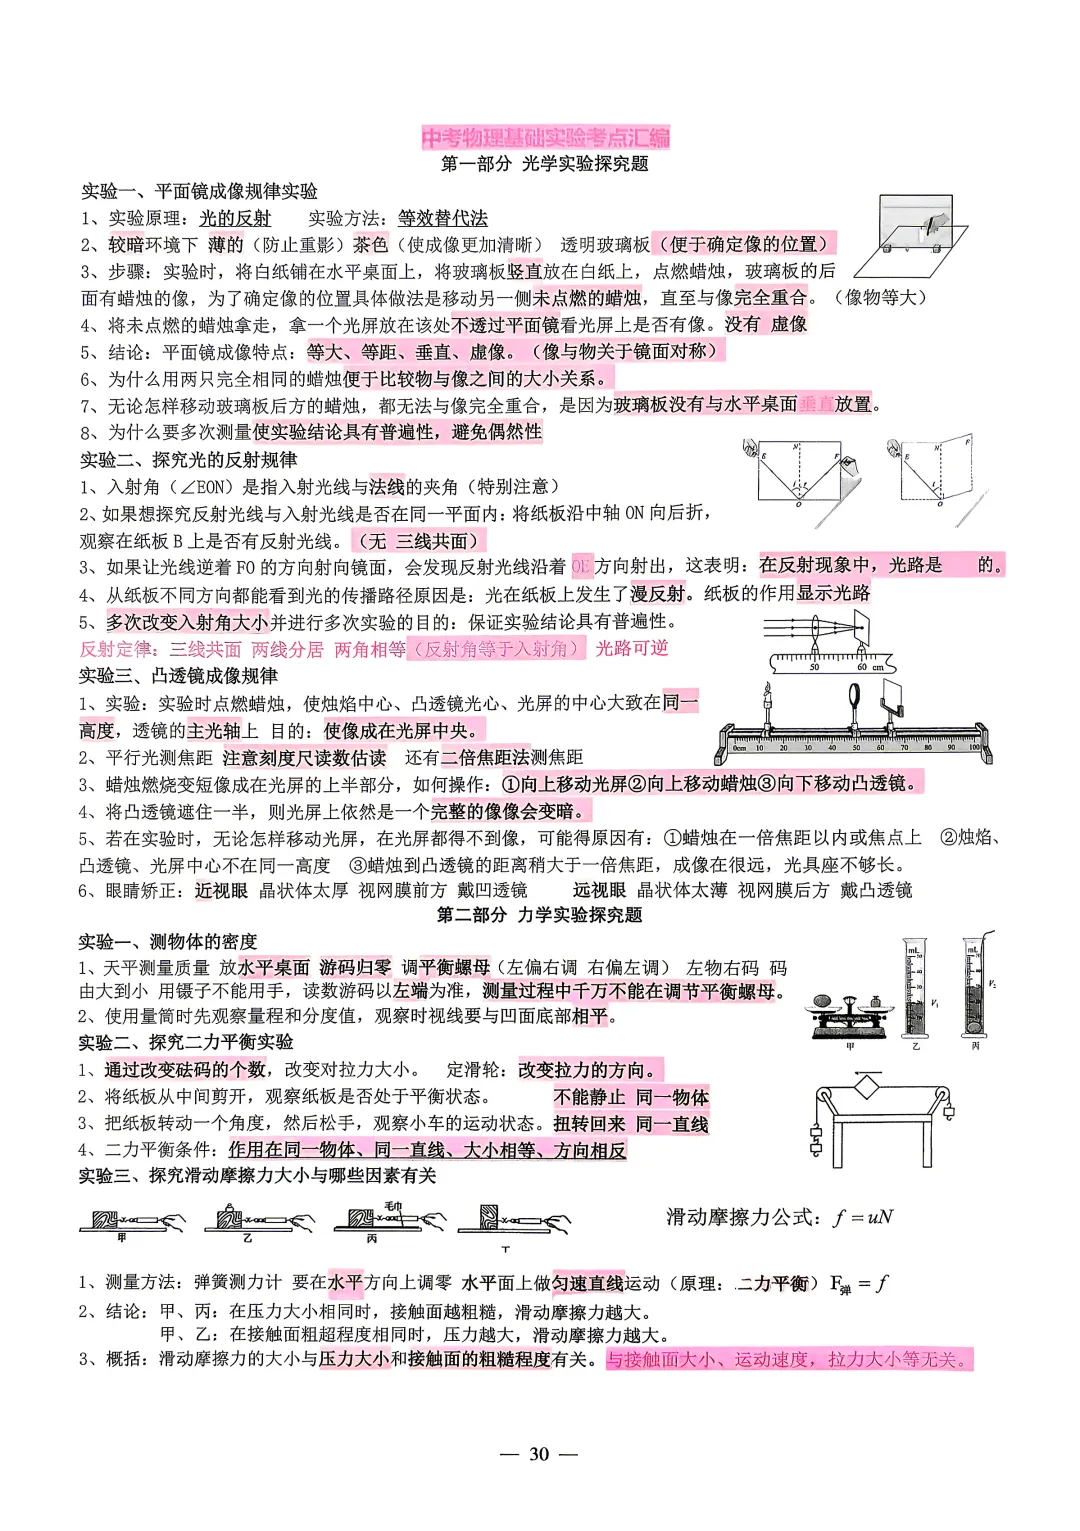 中考物理基础实验考点汇编
第一部分 光学实验探究题
实验一、平面镜成像规律实验
1、实验原理：光的反射 实验方法：等效替代法
2、较暗环境下 薄的（防止重影）茶色（使成像更加清晰） 透明玻璃板（便于确定像的位置）
3、步骤：实验时，将白纸铺在水平桌面上，将玻璃板竖直放在白纸上，点燃蜡烛，玻璃板的后
面有蜡烛的像，为了确定像的位置具体做法是移动另一侧未点燃的蜡烛，直至与像完全重合。（像物等大）
4、将未点燃的蜡烛拿走，拿一个光屏放在该处不透过平面镜看光屏上是否有像。没有 虚像
5、结论：平面镜成像特点：等大、等距、垂直、虚像。（像与物关于镜面对称）
6、为什么用两只完全相同的蜡烛便于比较物与像之间的大小关系。
7、无论怎样移动玻璃板后方的蜡烛，都无法与像完全重合，是因为玻璃板没有与水平桌面垂直放置。
8、为什么要多次测量使实验结论具有普遍性，避免偶然性
实验二、探究光的反射规律
E N F i r O
E N F i O
1、入射角（∠EON）是指入射光线与法线的夹角（特别注意）
2、如果想探究反射光线与入射光线是否在同一平面内：将纸板沿中轴 ON 向后折，
观察在纸板 B 上是否有反射光线。（无 三线共面）
3、如果让光线逆着 FO 的方向射向镜面，会发现反射光线沿着 OE 方向射出，这表明：在反射现象中，光路是 的。
4、从纸板不同方向都能看到光的传播路径原因是：光在纸板上发生了漫反射。纸板的作用显示光路
5、多次改变入射角大小并进行多次实验的目的：保证实验结论具有普遍性。
反射定律：三线共面 两线分居 两角相等（反射角等于入射角） 光路可逆
50 60 cm
实验三、凸透镜成像规律
1、实验：实验时点燃蜡烛，使烛焰中心、凸透镜光心、光屏的中心大致在同一
高度，透镜的主光轴上 目的：使像成在光屏中央。
0cm 10 20 30 40 50 60 70 80 90 100
2、平行光测焦距 注意刻度尺读数估读 还有二倍焦距法测焦距
3、蜡烛燃烧变短像成在光屏的上半部分，如何操作：①向上移动光屏②向上移动蜡烛③向下移动凸透镜。
4、将凸透镜遮住一半，则光屏上依然是一个完整的像像会变暗。
5、若在实验时，无论怎样移动光屏，在光屏都得不到像，可能得原因有：①蜡烛在一倍焦距以内或焦点上 ②烛焰、
凸透镜、光屏中心不在同一高度 ③蜡烛到凸透镜的距离稍大于一倍焦距，成像在很远，光具座不够长。
6、眼睛矫正：近视眼 晶状体太厚 视网膜前方 戴凹透镜 远视眼 晶状体太薄 视网膜后方 戴凸透镜
第二部分 力学实验探究题
实验一、测物体的密度
1、天平测量质量 放水平桌面 游码归零 调平衡螺母（左偏右调 右偏左调） 左物右码 码
由大到小 用镊子不能用手，读数游码以左端为准，测量过程中千万不能在调节平衡螺母。
2、使用量筒时先观察量程和分度值，观察时视线要与凹面底部相平。
mL V₁ mL V₂
甲 乙 丙
实验二、探究二力平衡实验
1、通过改变砝码的个数，改变对拉力大小。 定滑轮：改变拉力的方向。
2、将纸板从中间剪开，观察纸板是否处于平衡状态。 不能静止 同一物体
3、把纸板转动一个角度，然后松手，观察小车的运动状态。扭转回来 同一直线
4、二力平衡条件：作用在同一物体、同一直线、大小相等、方向相反
实验三、探究滑动摩擦力大小与哪些因素有关
毛巾
甲 乙 丙 丁
滑动摩擦力公式：f = uN
1、测量方法：弹簧测力计 要在水平方向上调零 水平面上做匀速直线运动（原理：二力平衡）F弹 = f
2、结论：甲、丙：在压力大小相同时，接触面越粗糙，滑动摩擦力越大。
甲、乙：在接触面粗超程度相同时，压力越大，滑动摩擦力越大。
3、概括：滑动摩擦力的大小与压力大小和接触面的粗糙程度有关。与接触面大小、运动速度，拉力大小等无关。
— 30 —